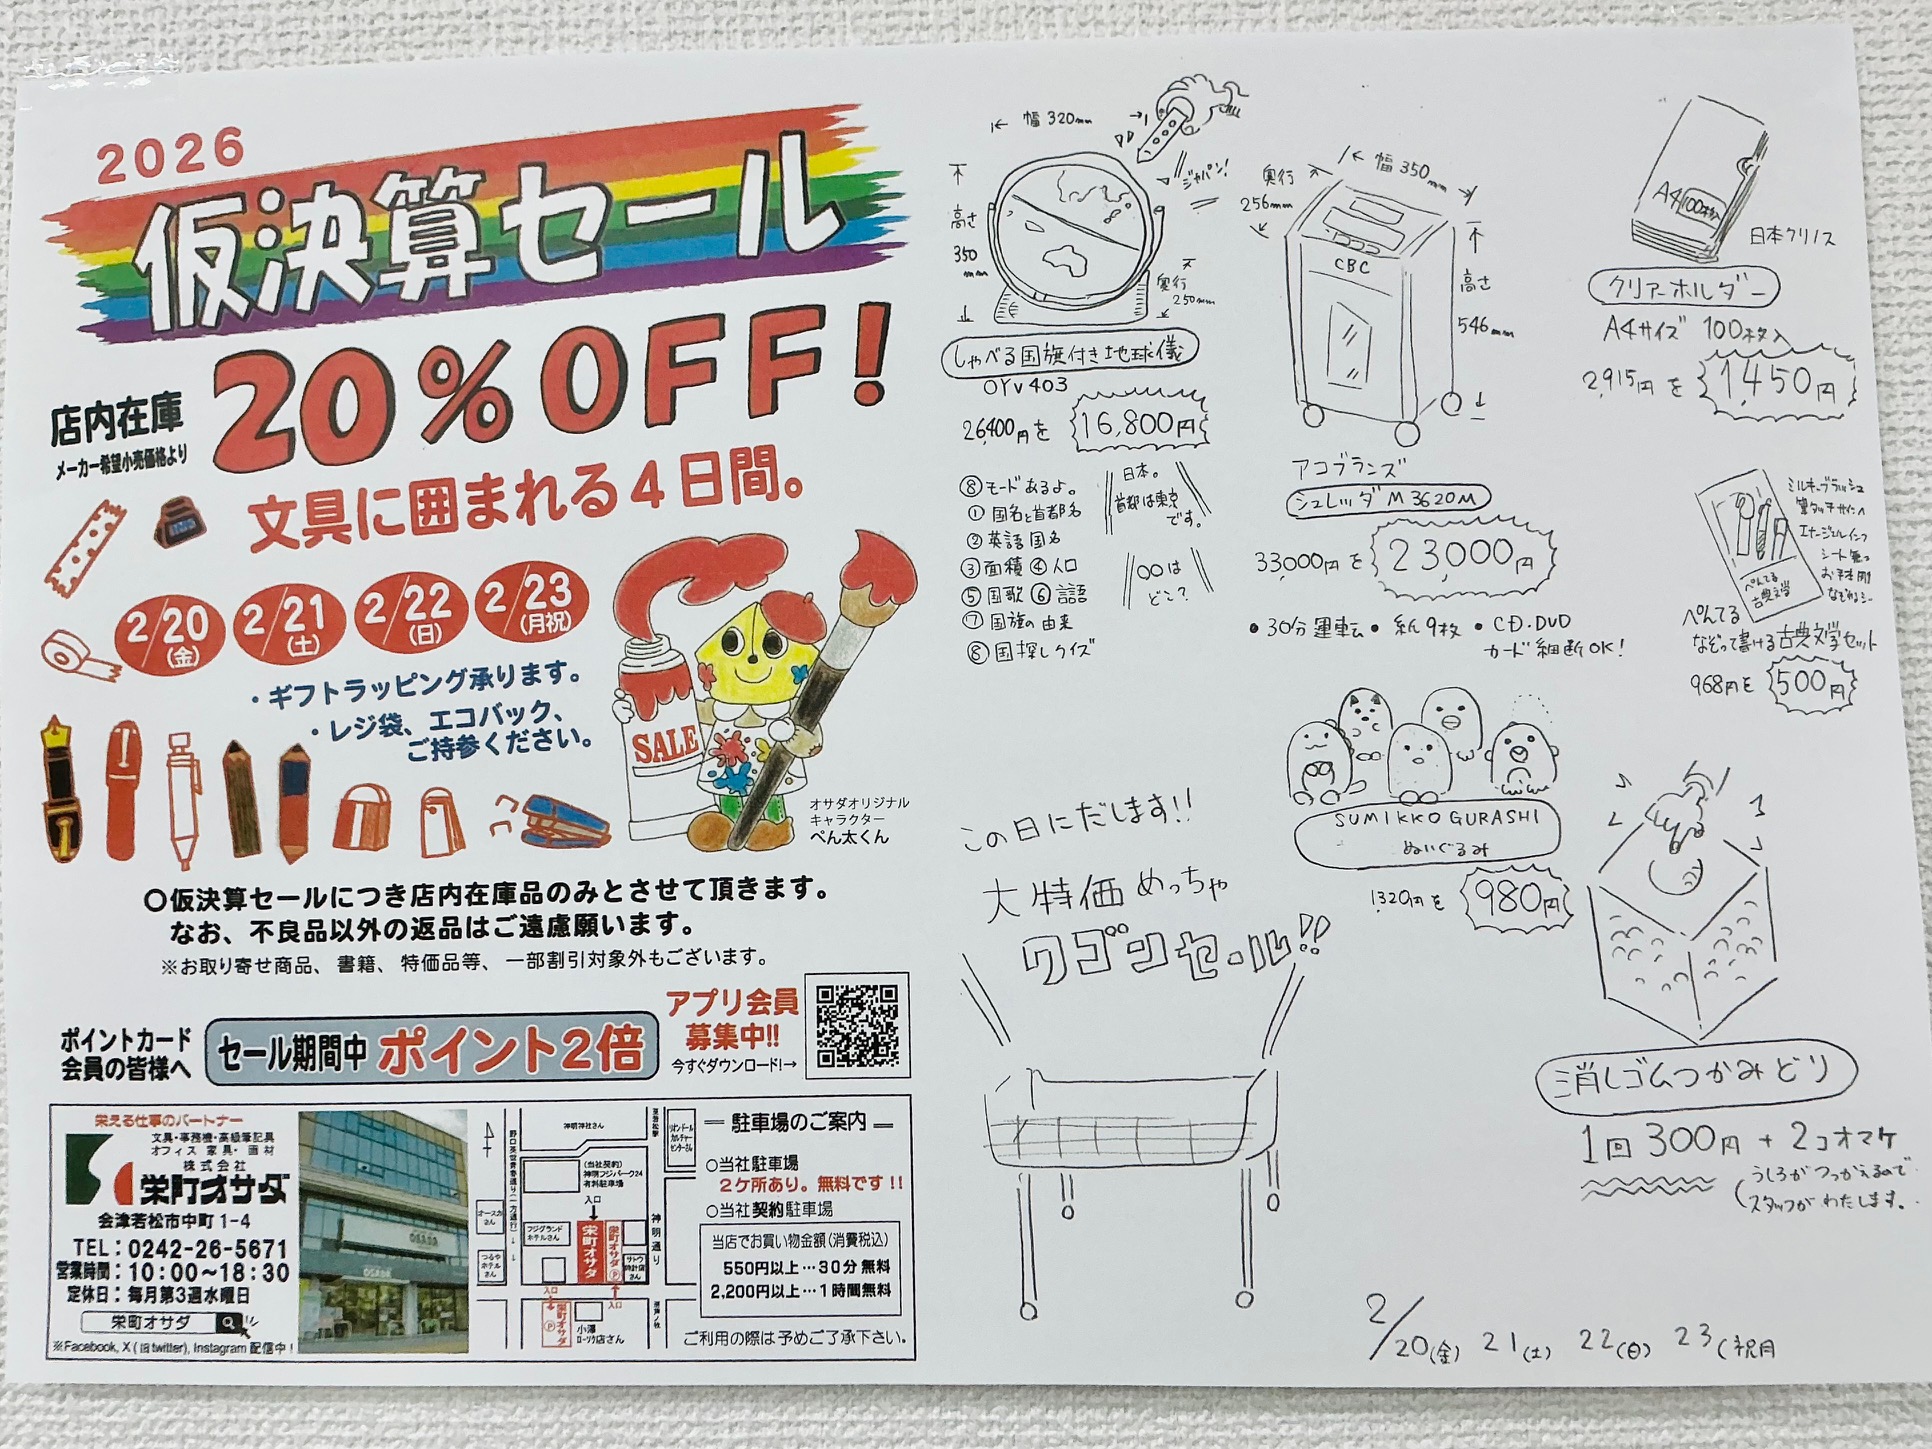 2026
仮決算セール
店内在庫
メーカー希望小売価格より
20%OFF!
文具に囲まれる4日間。
2/20(金)
2/21(土)
2/22(日)
2/23(月祝)
・ギフトラッピング承ります。
・レジ袋、エコバック、
ご持参ください。
SALE
オサダオリジナル
キャラクター
ぺん太くん
○仮決算セールにつき店内在庫品のみとさせて頂きます。
なお、不良品以外の返品はご遠慮願います。
※お取り寄せ商品、書籍、特価品等、一部割引対象外もございます。
ポイントカード
会員の皆様へ
セール期間中 ポイント2倍
アプリ会員
募集中!!
今すぐダウンロード!→
栄える仕事のパートナー
文具・事務機・高級筆記具
オフィス家具・画材
株式会社
栄町オサダ
会津若松市中町1-4
TEL:0242-26-5671
営業時間:10:00～18:30
定休日:毎月第3週水曜日
栄町オサダ
※Facebook, X(旧twitter), Instagram配信中!
OSADA
神明神社さん
(当社契約)
神明フジパーク24
有料駐車場
入口
フジグランド
ホテルさん
つるや
ホテルさん
栄町オサダ
栄町オサダ
神明通り
入口
入口
栄町オサダ
小澤
ローソク店さん
━ 駐車場のご案内 ━
○当社駐車場
2ケ所あり。無料です!!
○当社契約駐車場
当店でお買い物金額(消費税込)
550円以上…30分無料
2,200円以上…1時間無料
ご利用の際は予めご了承下さい。
幅320mm
高さ
350mm
奥行
250mm
ジャパン!
しゃべる国旗付き地球儀
OYV403
26,400円を
16,800円
⑧モードあるよ。
①国名と首都名
②英語国名
③面積④人口
⑤国歌⑥言語
⑦国旗の由来
⑧国探しクイズ
日本。
首都は東京
です。
○○は
どこ?
幅350mm
奥行
256mm
高さ
546mm
CBC
アコブランズ
シュレッダM3620M
33,000円を
23,000円
・30分運転・紙9枚・CD.DVD
カード細断OK!
A4 100枚入
日本クリノス
クリアーホルダー
A4サイズ 100枚入
2,915円を
1,450円
ぺんてる
古典文学
ぺんてる
なぞって書ける古典文学セット
968円を
500円
SUMIKKOGURASHI
ぬいぐるみ
1,320円を
980円
この日にだします!!
大特価めっちゃ
ワゴンセール!!
消しゴムつかみどり
1回300円+2コオマケ
うしろがつっかえるので
スタッフがわたします。
2/20(金) 21(土) 22(日) 23(祝月